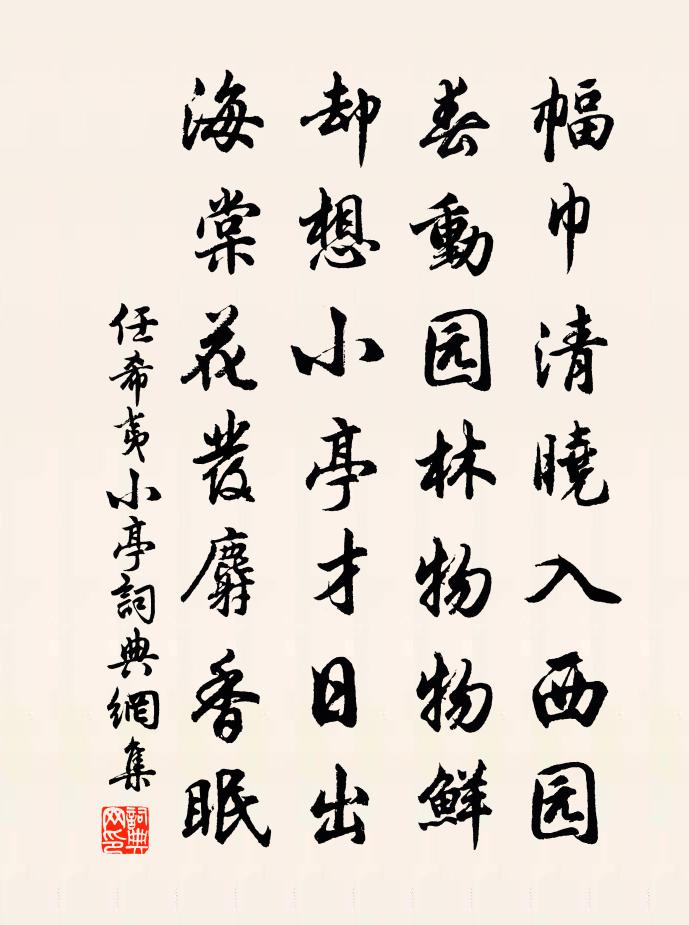 幅巾清曉入西园
春動园林物物鮮
却想小亭才日出
海棠花發麝香眠
任希夷小亭詞典網集
詞典网印